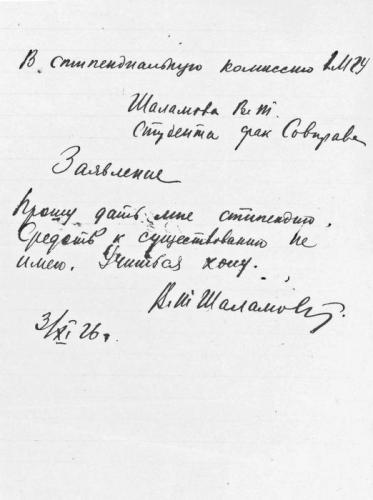 В стипендиальную комиссию 1 МГУ
Шаламова В. Т.
Студента фак Совправа
Заявление
Прошу дать мне стипендию.
Средств к существованию не
имею. Учиться хочу.
В. Т Шаламов.
3/XI 26 г.